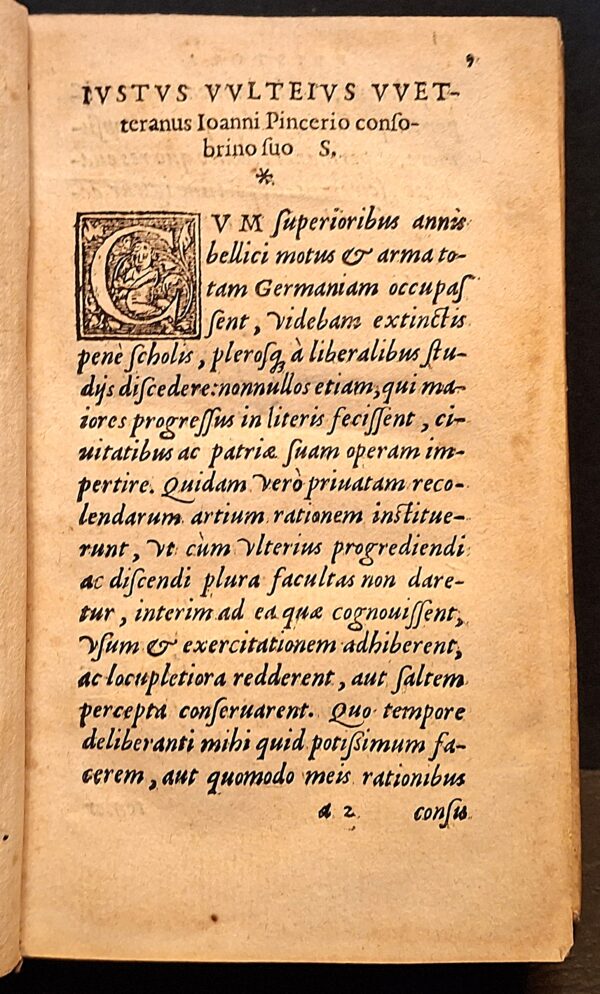 IVSTVS VVLTEIVS VVET-
teranus Ioanni Pincerio conſo-
brino ſuo S.
*
CVM ſuperioribus annis
bellici motus & arma to-
tam Germaniam occupaſ
ſent, videbam extinctis
penè ſcholis, pleroſq; à liberalibus ſtu-
dijs diſcedere: nonnullos etiam, qui ma-
iores progreſſus in literis feciſſent, ci-
uitatibus ac patriæ ſuam operam im-
pertire. Quidam verò priuatam reco-
lendarum artium rationem inſtitue-
runt, vt cùm vlterius progrediendi
ac diſcendi plura facultas non dare-
tur, interim ad ea quæ cognouiſſent,
vſum & exercitationem adhiberent,
ac locupletiora redderent, aut ſaltem
percepta conſeruarent. Quo tempore
deliberanti mihi quid potiſſimum fa-
cerem, aut quomodo meis rationibus
a 2 conſu